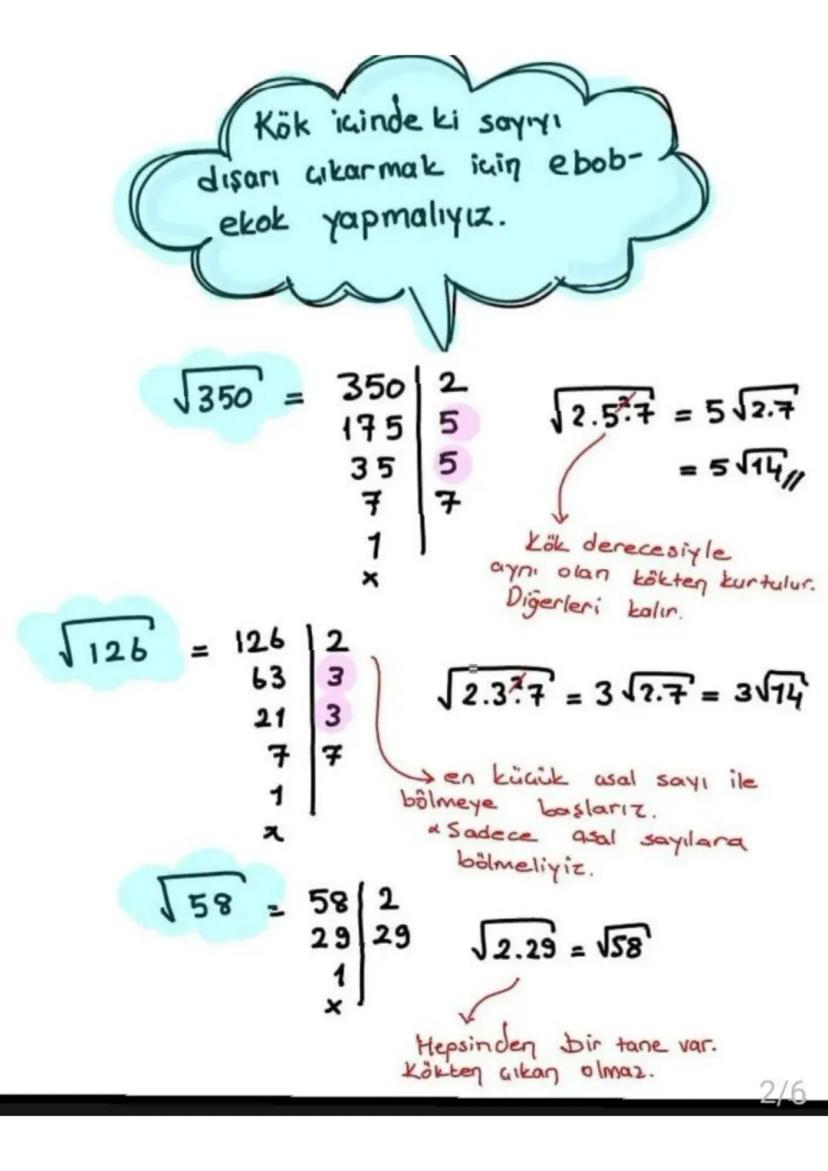 Kök içinde ki sayıyı
dışarı çıkarmak için ebob-
ekok yapmalıyız.
√350 = 350 | 2
175 | 5
35 | 5
7 | 7
1
x
√2.5².7 = 5√2.7
= 5√14//
Kök derecesiyle
aynı olan kökten kurtulur.
Diğerleri kalır.
√126 = 126 | 2
63 | 3
21 | 3
7 | 7
1
x
√2.3².7 = 3√2.7 = 3√14
en küçük asal sayı ile
bölmeye başlarız.
* Sadece asal sayılara
bölmeliyiz.
√58 = 58 | 2
29 | 29
1
x
√2.29 = √58
Hepsinden bir tane var.
Kökten çıkan olmaz.
2/6